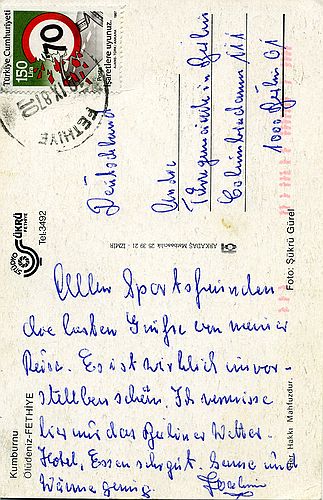 Allen Sportsfreunden
die besten Grüße von meiner
Reise. Es ist wirklich unvor-
stellbar schön. Ich vermisse
hier nur das Berliner Wetter.
Hotel, Essen sehr gut. Sonne und
Wärme genug.
An die
in Berlin
Columbiadamm 111
1000 Berlin 61
Deutschland
Türkiye Cumhuriyeti
150 Lira
70
İşaretlere uyunuz.
FETHİYE
IX.87.10
STÜDYO ŞÜKRÜ FETHİYE
Tel:3492
ARKADAŞ Matbaacılık 25 39 21 - İZMİR
Kumburnu
Ölüdeniz-FETHİYE
Foto: Şükrü Gürel
Her Hakkı Mahfuzdur.